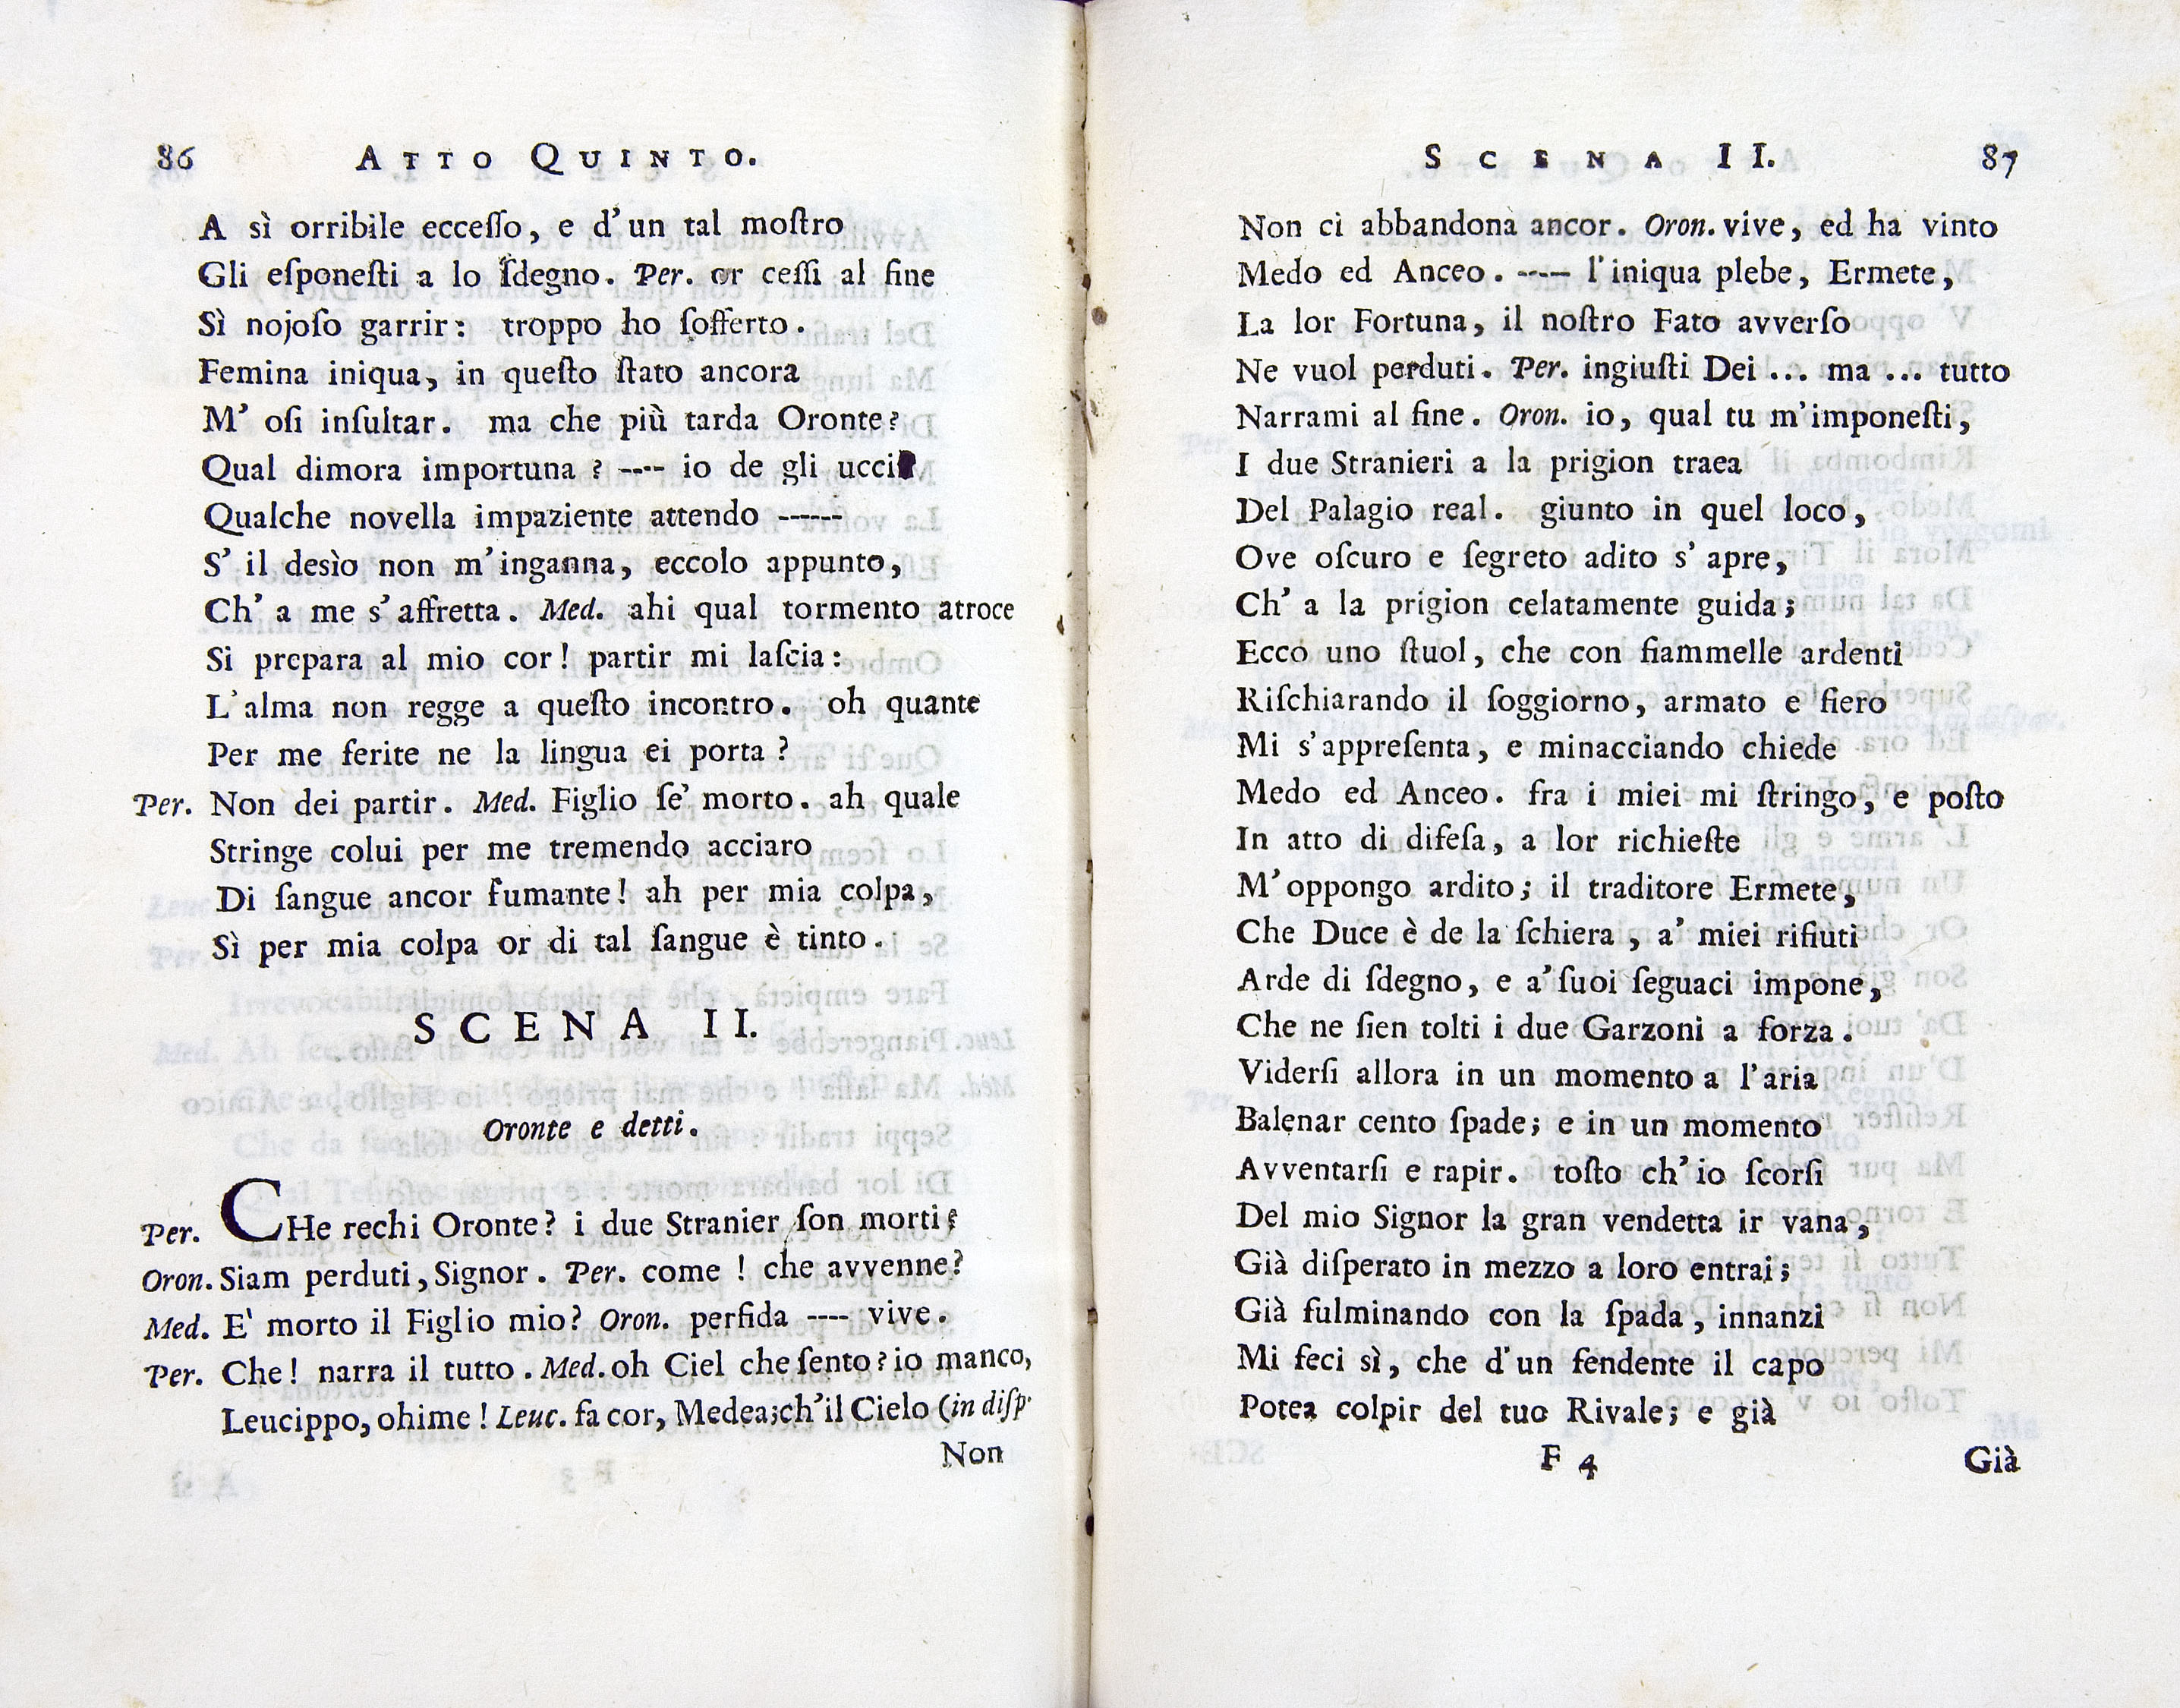 86 ATTO QUINTO.
A sì orribile ecceſſo, e d'un tal moſtro
Gli eſponeſti a lo ſdegno. Per. or ceſſi al fine
Sì nojoſo garrir: troppo ho ſofferto.
Femina iniqua, in queſto ſtato ancora
M' oſi inſultar. ma che più tarda Oronte?
Qual dimora importuna? ---- io de gli
Qualche novella impaziente attendo ------
S' il desìo non m'inganna, eccolo appunto,
Ch' a me s'affretta. Med. ahi qual tormento atroce
Si prepara al mio cor! partir mi laſcia:
L'alma non regge a queſto incontro. oh quante
Per me ferite ne la lingua ei porta?
Per. Non dei partir. Med. Figlio ſe' morto. ah quale
Stringe colui per me tremendo acciaro
Di ſangue ancor fumante! ah per mia colpa,
Sì per mia colpa or di tal ſangue è tinto.
SCENA II.
Oronte e detti.
Per. CHe rechi Oronte? i due Stranier ſon morti?
Oron. Siam perduti, Signor. Per. come! che avvenne?
Med. E' morto il Figlio mio? Oron. perfida ---- vive.
Per. Che! narra il tutto. Med. oh Ciel che ſento? io manco,
Leucippo, ohime! Leuc. fa cor, Medea; ch'il Cielo (in diſp.
Non
SCENA II. 87
Non ci abbandona ancor. Oron. vive, ed ha vinto
Medo ed Anceo. ---- l'iniqua plebe, Ermete,
La lor Fortuna, il noſtro Fato avverſo
Ne vuol perduti. Per. ingiuſti Dei ... ma ... tutto
Narrami al fine. Oron. io, qual tu m'imponeſti,
I due Stranieri a la prigion traea
Del Palagio real. giunto in quel loco,
Ove oſcuro e ſegreto adito s'apre,
Ch' a la prigion celatamente guida;
Ecco uno ſtuol, che con fiammelle ardenti
Riſchiarando il ſoggiorno, armato e fiero
Mi s'appreſenta, e minacciando chiede
Medo ed Anceo. fra i miei mi ſtringo, e poſto
In atto di difeſa, a lor richieſte
M'oppongo ardito; il traditore Ermete,
Che Duce è de la ſchiera, a' miei rifiuti
Arde di ſdegno, e a' ſuoi ſeguaci impone,
Che ne ſien tolti i due Garzoni a forza.
Viderſi allora in un momento a l'aria
Balenar cento ſpade; e in un momento
Avventarſi e rapir. toſto ch'io ſcorſi
Del mio Signor la gran vendetta ir vana,
Già diſperato in mezzo a loro entrai;
Già fulminando con la ſpada, innanzi
Mi feci sì, che d'un fendente il capo
Potea colpir del tuo Rivale; e già
F 4 Già